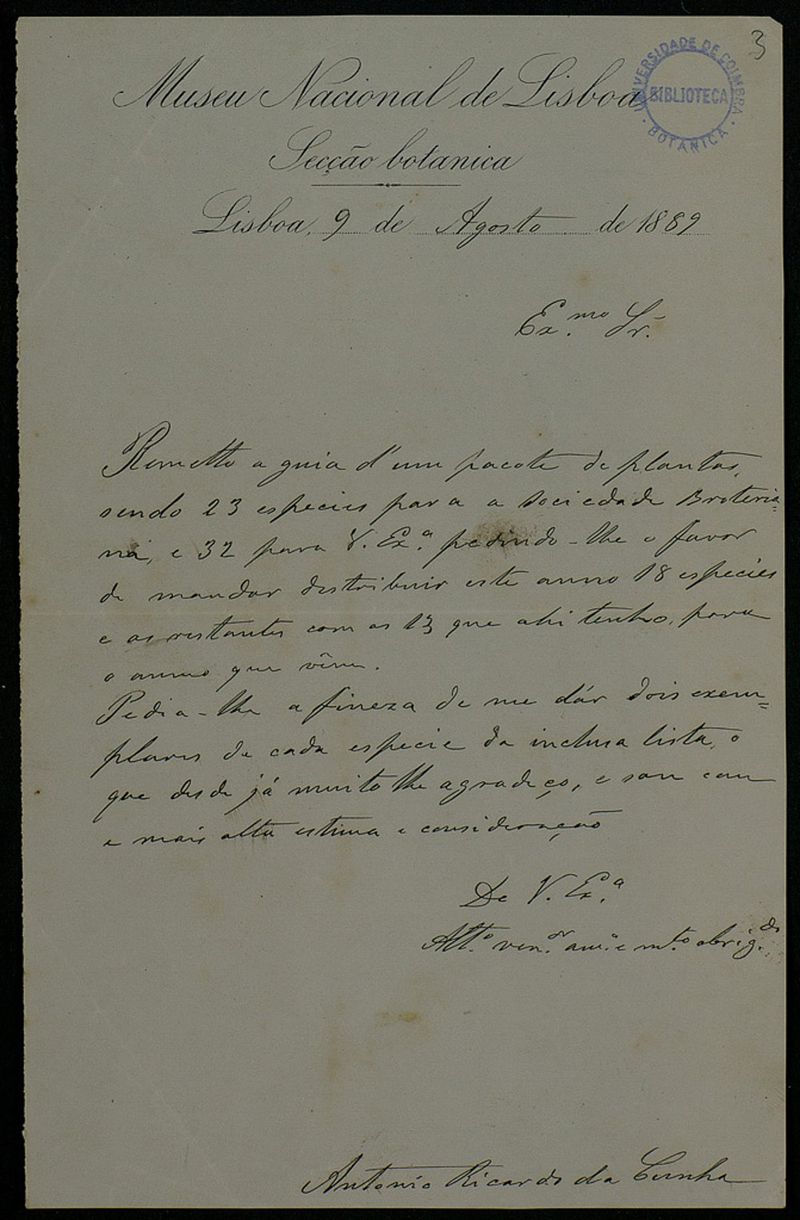 3
UNIVERSIDADE DE COIMBRA
BIBLIOTECA
BOTANICA
Museu Nacional de Lisboa
Secção botanica
Lisboa, 9 de Agosto de 1889
Ex.mo Sr.
Remetto a guia d'um pacote de plantas,
sendo 23 especies para a Sociedade Broteria=
na, e 32 para V. Ex.a pedindo-lhe o favor
de mandar distribuir este anno 18 especies
e as restantes com as 13 que ahi tenho, para
o anno que vêm.
Pedia-lhe a fineza de me dár dois exem=
plares de cada especie da inclusa lista, o
que desde já muito lhe agradeço, e sou com
a mais alta estima e consideração
De V. Ex.a
Att.o ven.or am.o e m.to obrig.do
Antonio Ricardo da Cunha